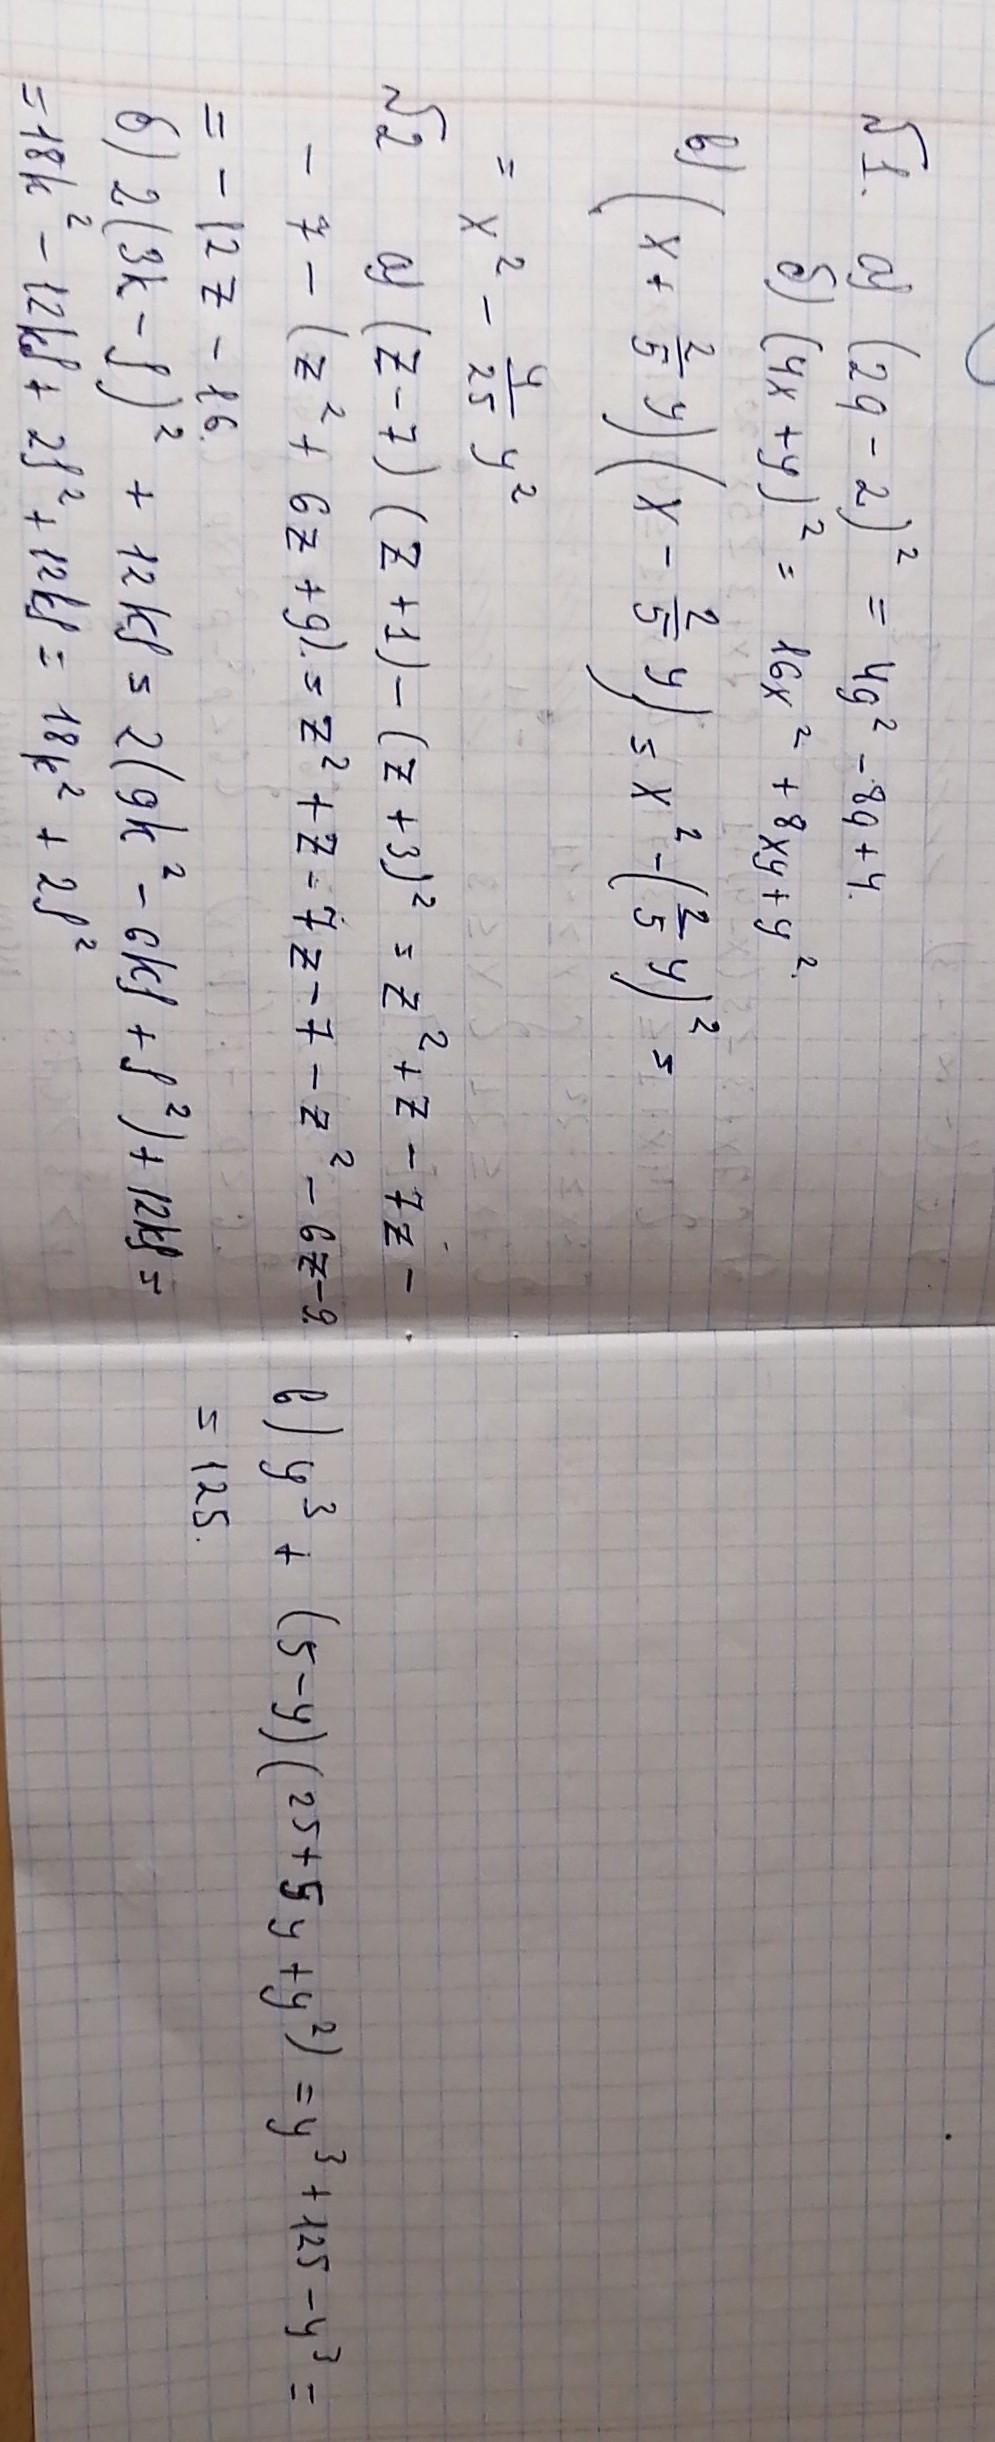 №1. а) (2q - 2)² = 4q² - 8q + 4.
б) (4x + y)² = 16x² + 8xy + y².
в) (x + 2/5 y)(x - 2/5 y) = x² - (2/5 y)² =
= x² - 4/25 y²
№2 а) (z - 7)(z + 1) - (z + 3)² = z² + z - 7z -
- 7 - (z² + 6z + 9). = z² + z - 7z - 7 - z² - 6z - 9.
= - 12z - 16.
б) 2(3k - f)² + 12kf = 2(9k² - 6kf + f²) + 12kf =
= 18k² - 12kf + 2f² + 12kf = 18k² + 2f²
в) y³ + (5 - y)(25 + 5y + y²) = y³ + 125 - y³ =
= 125.